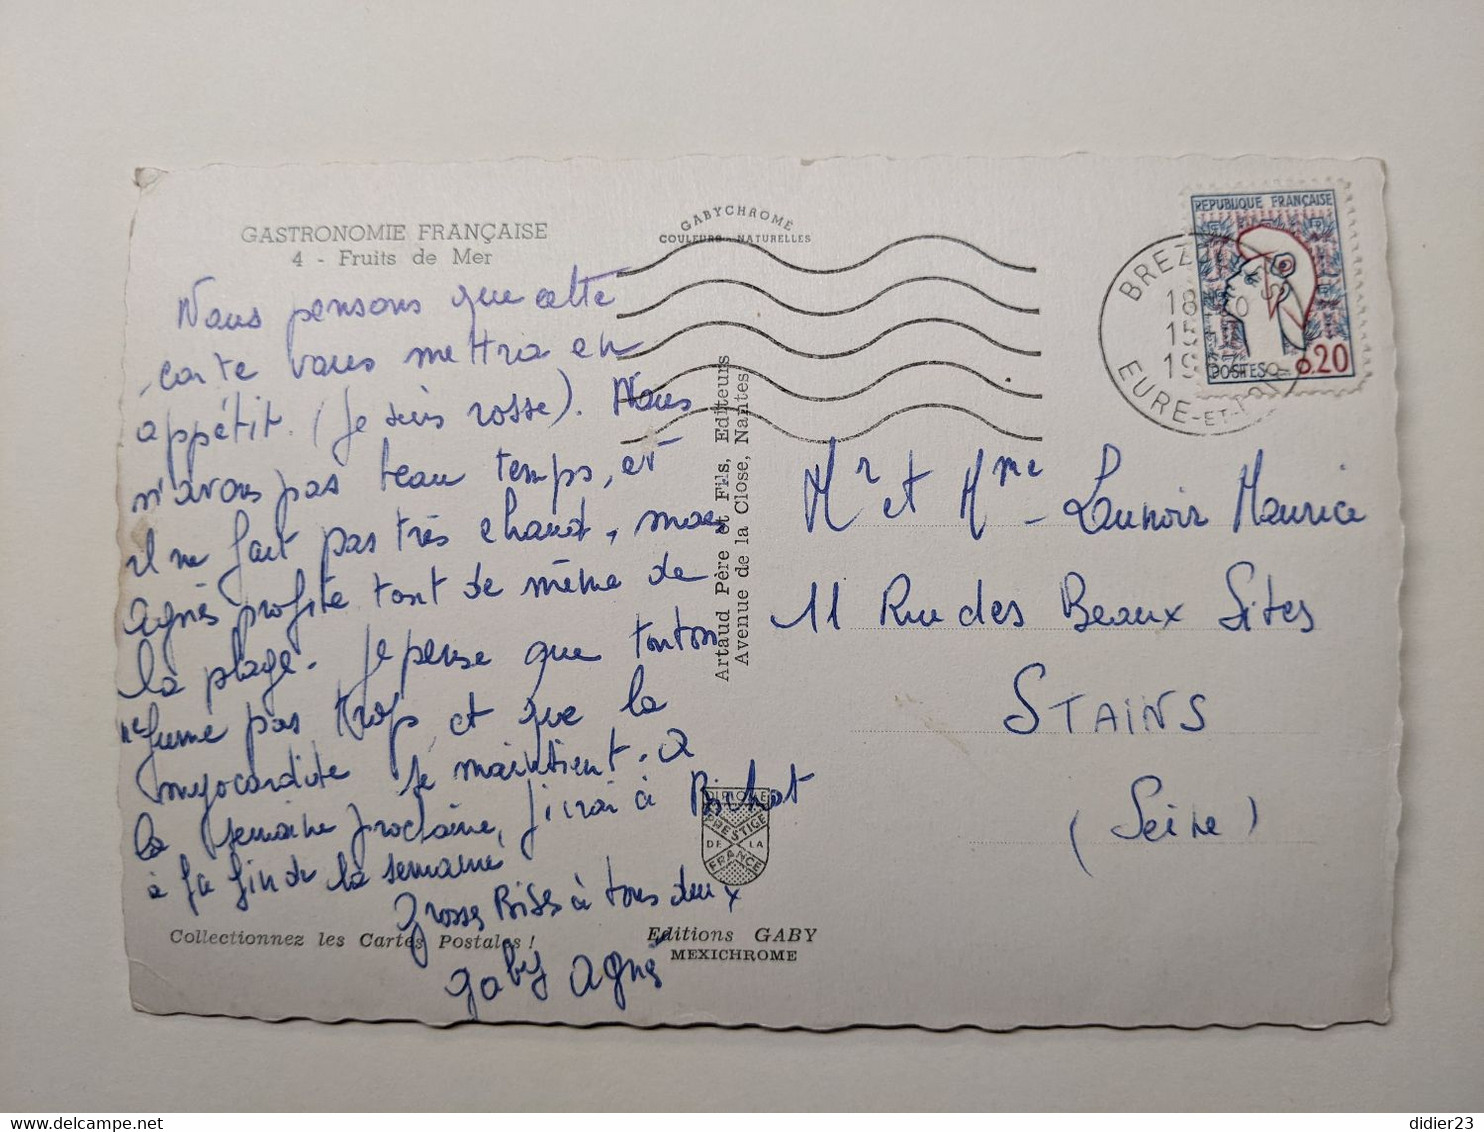 GASTRONOMIE FRANÇAISE
4 - Fruits de Mer
Nous pensons que cette
carte vous mettra en
appétit. (Je suis rosse). Nous
n'avons pas beau temps, et
il ne fait pas très chaud, mais
Agnès profite tout de même de
la plage. Je pense que tonton
ne fume pas trop, et que la
myocardite se maintient. A
la semaine prochaine, j'irai à Bichat
à la fin de la semaine
Grosses Bises à tous deux
Gaby Agnès
Collectionnez les Cartes Postales !
GABYCHROME
COULEURS NATURELLES
Artaud Père et Fils, Editeurs
Avenue de la Close, Nantes
DIPLOME
PRESTIGE
DE LA
FRANCE
Editions GABY
MEXICHROME
REPUBLIQUE FRANÇAISE
POSTES 0,20
BREZOLLES
18
15
19
EURE-ET-LOIR
Mr et Mme Launoir Maurice
11 Rue des Beaux Sites
STAINS
(Seine)
didier23